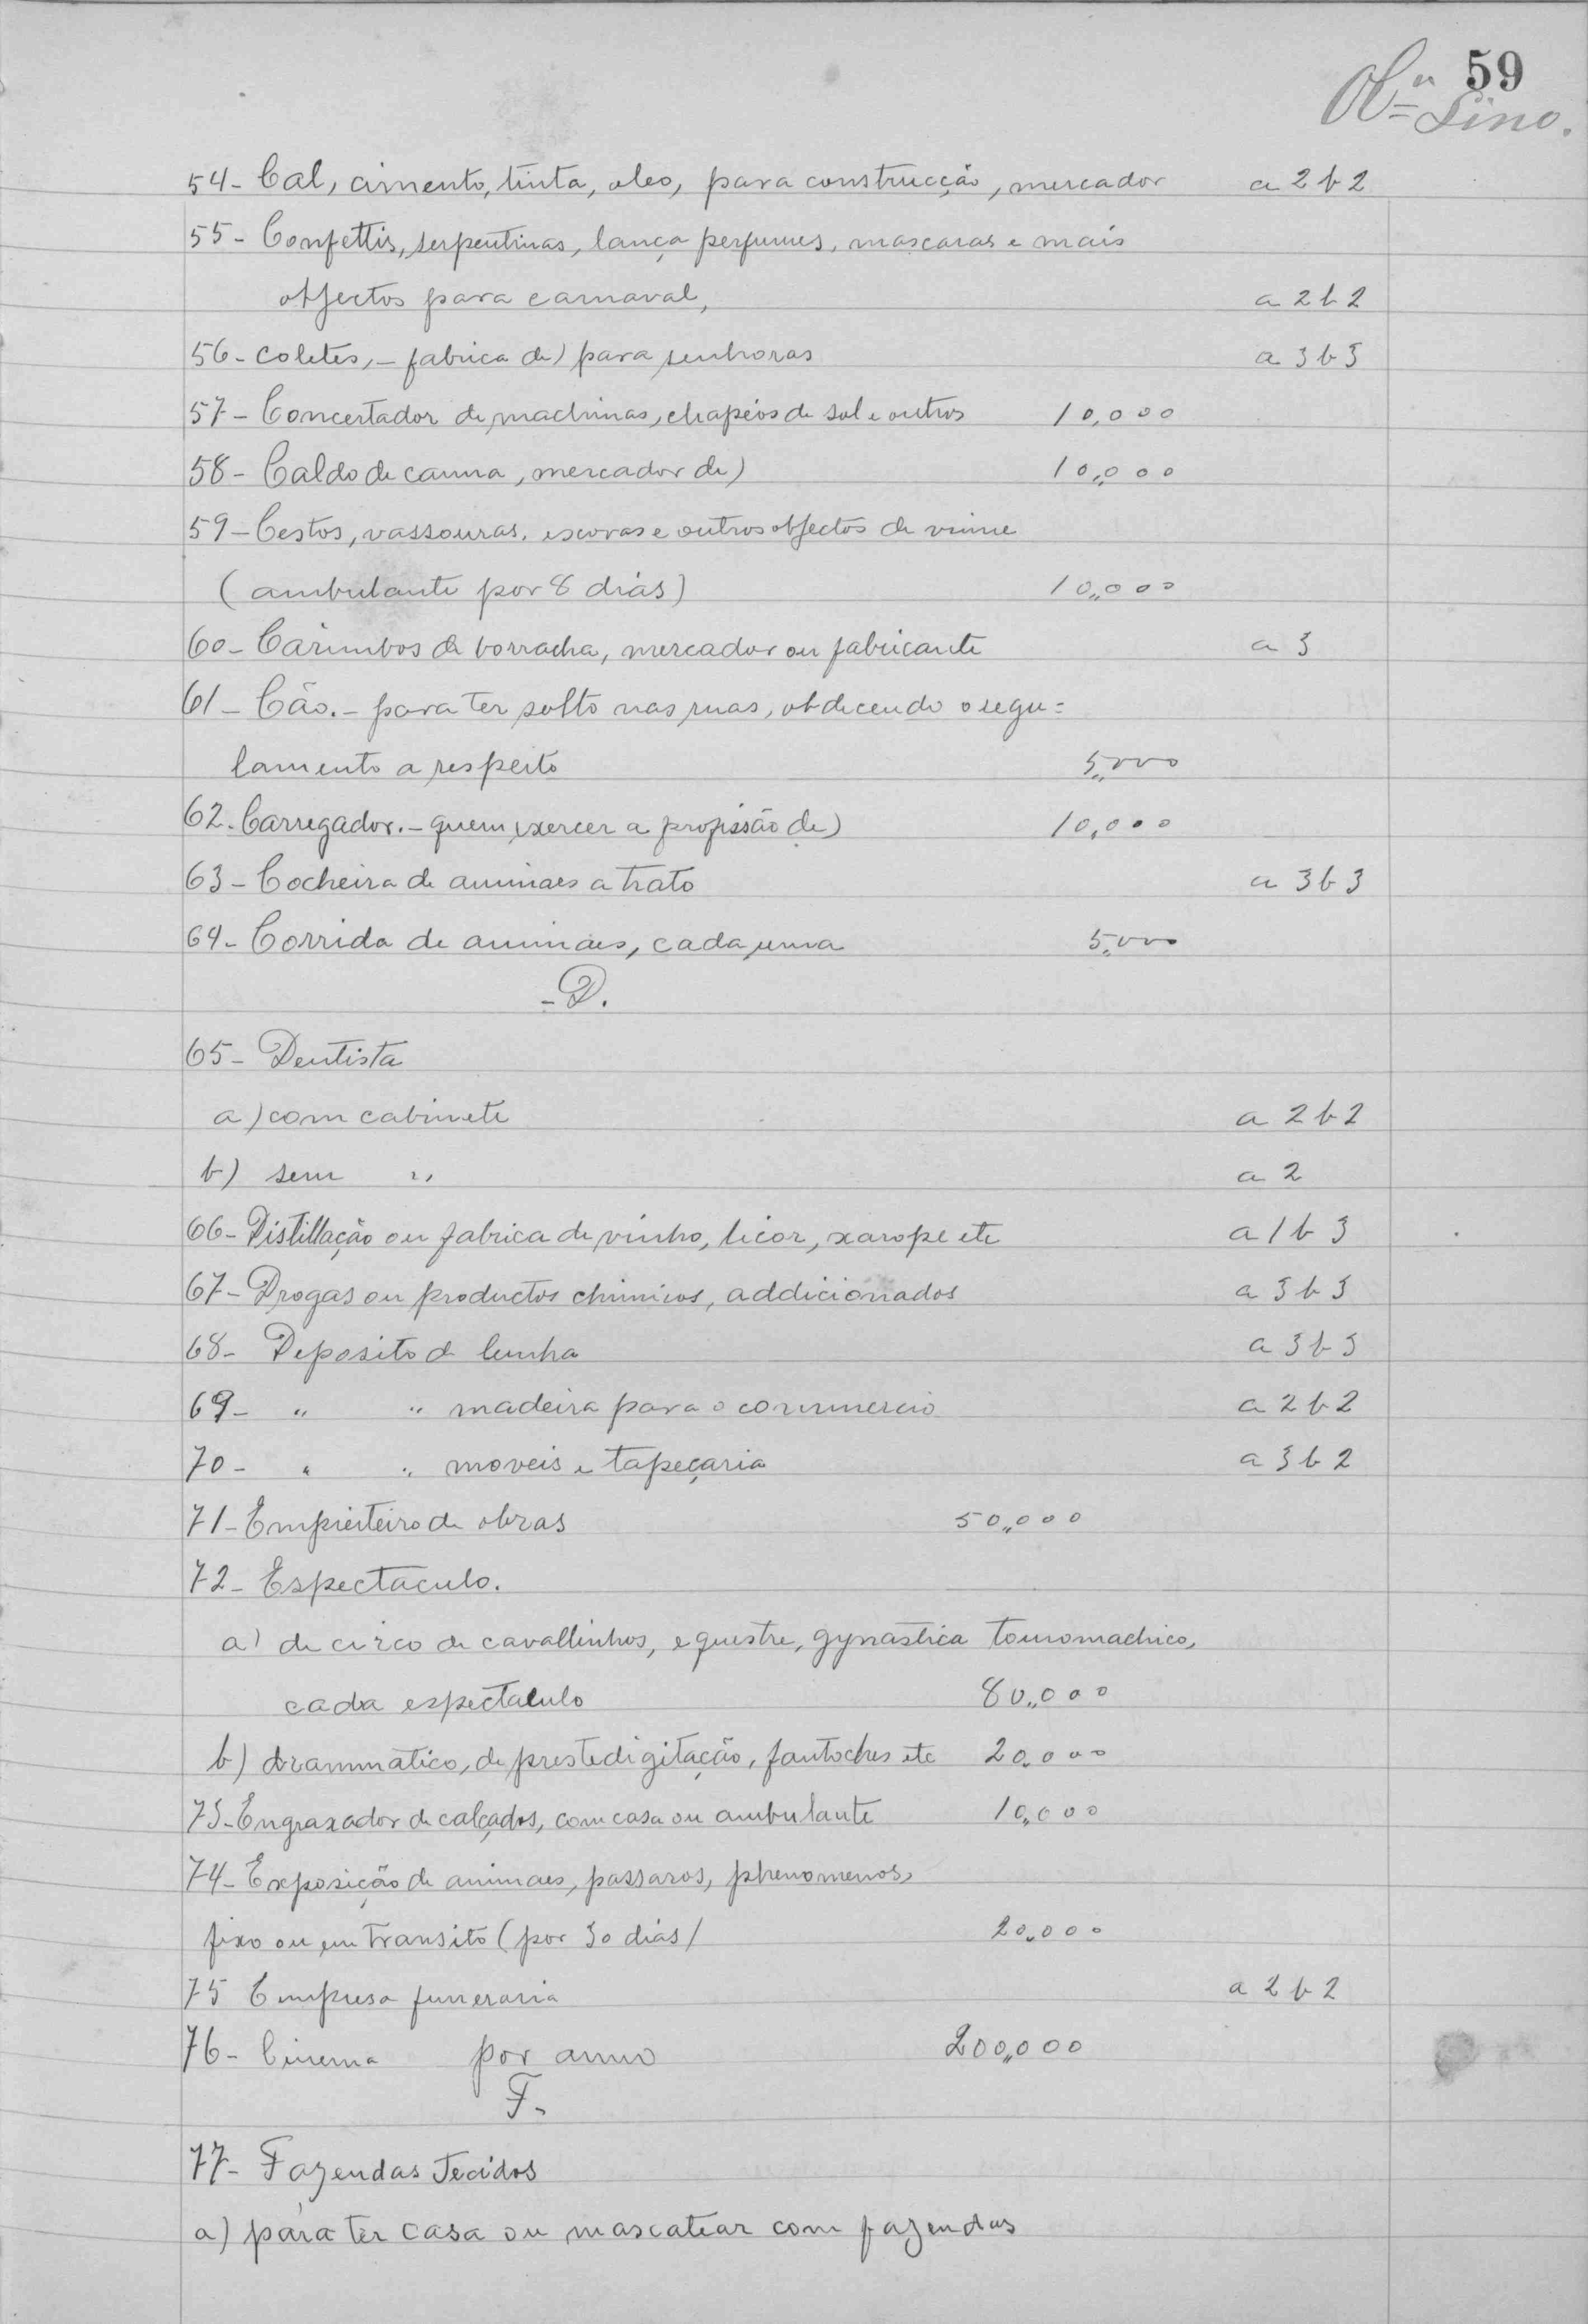 59
Lino.
54- Cal, cimento, tinta, oleo, para construcção, mercador a 2 b 2
55- Confettis, serpentinas, lança perfumes, mascaras e mais
objectos para carnaval, a 2 b 2
56- coletes,- fabrica de) para senhoras a 3 b 3
57- Concertador de machinas, chapéos de sol e outros 10,000
58- Caldo de canna, mercador de) 10,,000
59- Cestos, vassouras, escovas e outros objectos de vime
(ambulante por 8 dias) 10,,000
60- Carimbos de borracha, mercador ou fabricante a 3
61- Cão.- para ter solto nas ruas, obdecendo o regu=
lamento a respeito 5,,000
62. Carregador.- quem exercer a profissão de) 10,000
63- Cocheira de animaes a trato a 3 b 3
64- Corrida de animaes, cada uma 5,,000
- D.
65- Dentista
a) com cabinete a 2 b 2
b) sem ,, a 2
66- Distillação ou fabrica de vinho, licor, xarope etc a 1 b 3
67- Drogas ou productos chimicos, addicionados a 3 b 3
68- Deposito de lenha a 3 b 3
69- " " madeira para o commercio a 2 b 2
70- " " moveis e tapeçaria a 3 b 2
71- Empreiteiro de obras 50,,000
72- Espectaculo.
a) de circo de cavallinhos, equestre, gynastica touromachico,
cada espectaculo 80,,000
b) drammatico, de prestedigitação, fantoches etc 20,,000
73- Engraxador de calçados, com casa ou ambulante 10,,000
74- Exposição de animaes, passaros, phenomenos,
fixo ou em transito (por 30 dias/ 20,,000
75 Empresa funeraria a 2 b 2
76- Cinema por anno 200,,000
F-
77- Fazendas Tecidos
a) para ter casa ou mascatear com fazendas